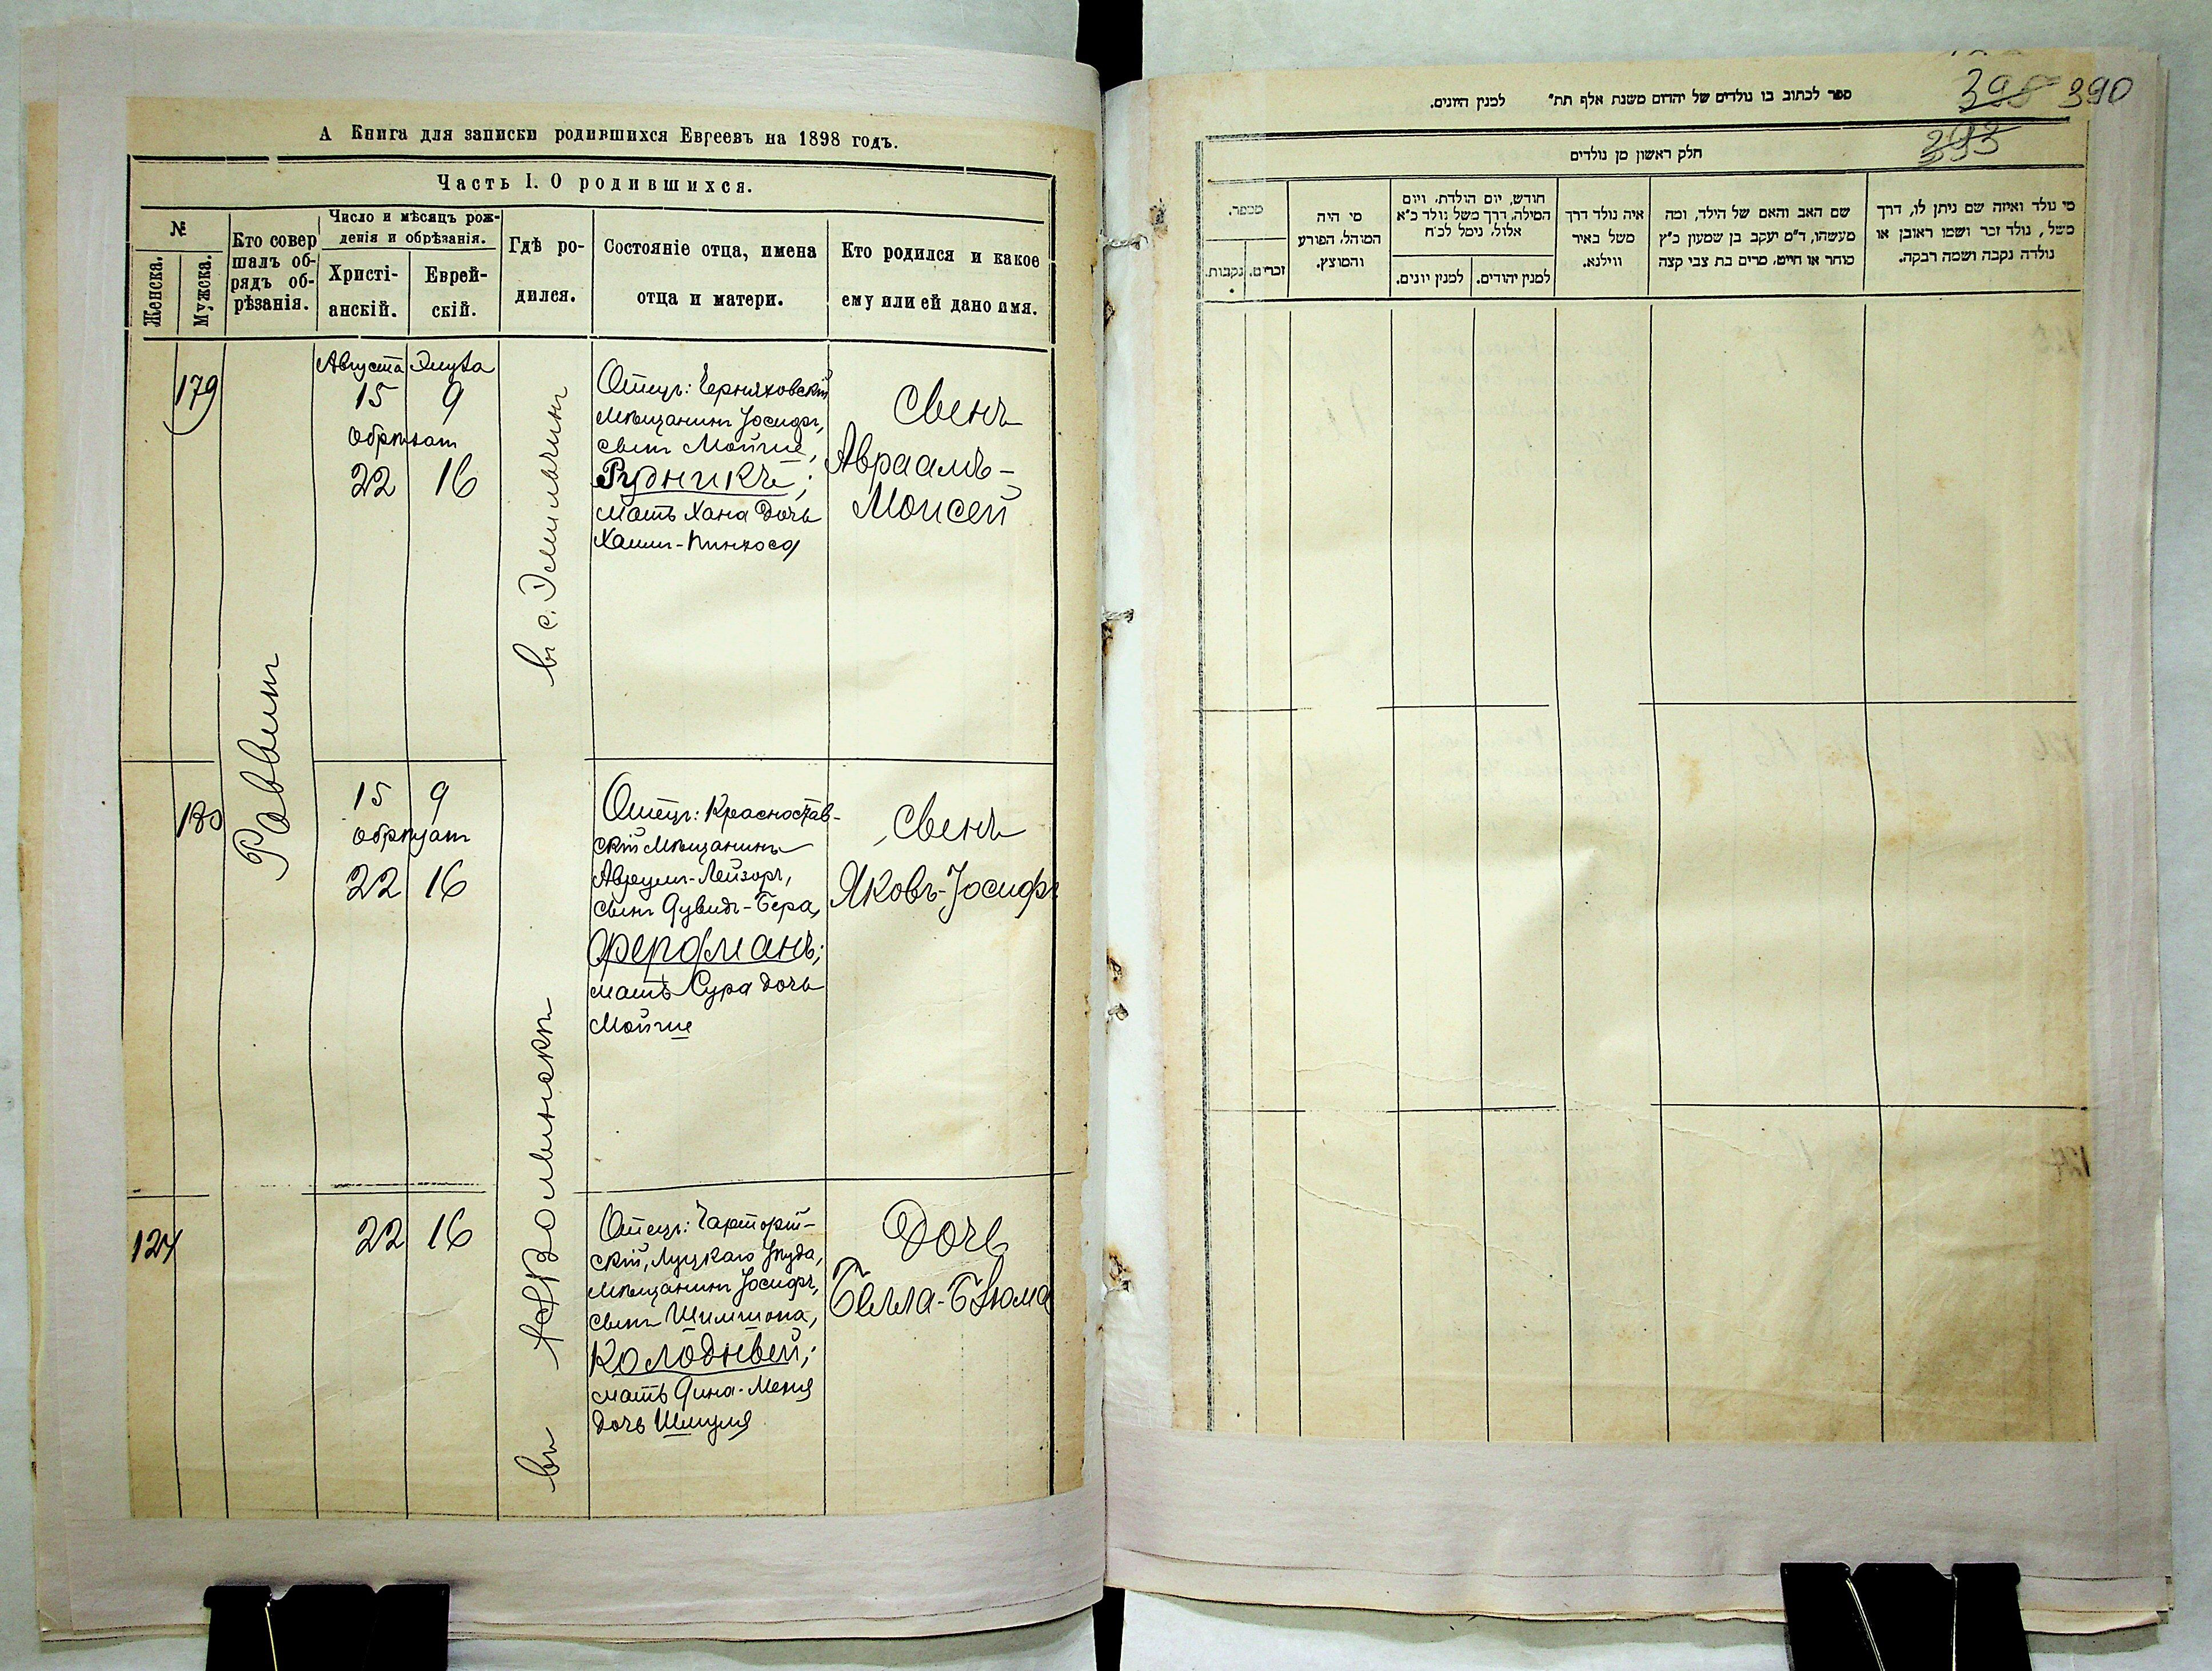 А Книга для записки родившихся Евреевъ на 1898 годъ.
Часть I. О родившихся.
№
Женска.
Мужска.
Кто совер
шалъ об-
рядъ об-
рѣзанія.
Число и мѣсяцъ рож-
денія и обрѣзанія.
Христі-
анскій.
Еврей-
скій.
Гдѣ ро-
дился.
Состояніе отца, имена
отца и матери.
Кто родился и какое
ему или ей дано имя.
Раввинъ
179
Августа Элула
15 9
обрѣзан
22 16
въ с. Эмильчинъ
Отецъ: Черняховскій
мѣщанинъ Іосифъ,
сынъ Мойше,
Рудникъ;
мать Хана дочь
Хаим-Пинхоса
Сынъ
Авраамъ-
Моисей
180
15 9
обрѣзан
22 16
Отецъ: Красностав-
скій мѣщанинъ
Аврум-Лейзоръ,
сынъ Дувидъ-Бера,
Фердманъ;
мать Сура дочь
Мойше
Сынъ
Яковъ-Іосифъ
въ Волынскѣ
127
22 16
Отецъ: Чарторій-
скій, Луцкаго уѣзда,
мѣщанинъ Іосифъ,
сынъ Шимшона,
Колодный;
мать Дина-Меня
дочь Шмуля
Дочь
Белла-Блюма
ספר לכתוב בו נולדים של יהדום משנת אלף תת״ למנין היונים.
398 390
393
חלק ראשון מן נולדים
מי נולד ואיזה שם ניתן לו, דרך
משל, נולד זכר ושמו ראובן או
נולדה נקבה ושמה רבקה.
שם האב והאם של הילד, ומה
מעשהו, ד״מ יעקב בן שמעון כ״ץ
סוחר או חייט, מרים בת צבי קצה
איה נולד דרך
משל באיר
ווילנא.
חודש, יום הולדת, ויום
המילה, דרך משל נולד כ״א
אלול, נימל לכ״ח
למנין יהודים.
למנין יונים.
מי היה
המוהל, הפורע
והמוצץ.
מספר.
זכרים.
נקבות.